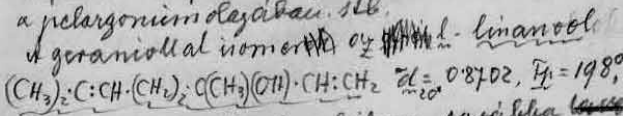 a pelargonium olajában. stb.
A geraniollal isomer az l- linanool
(CH₃)₂·C:CH·(CH₂)₂·C(CH₃)(OH)·CH:CH₂ d₂₀° = 0.8702, Fp. = 198°,